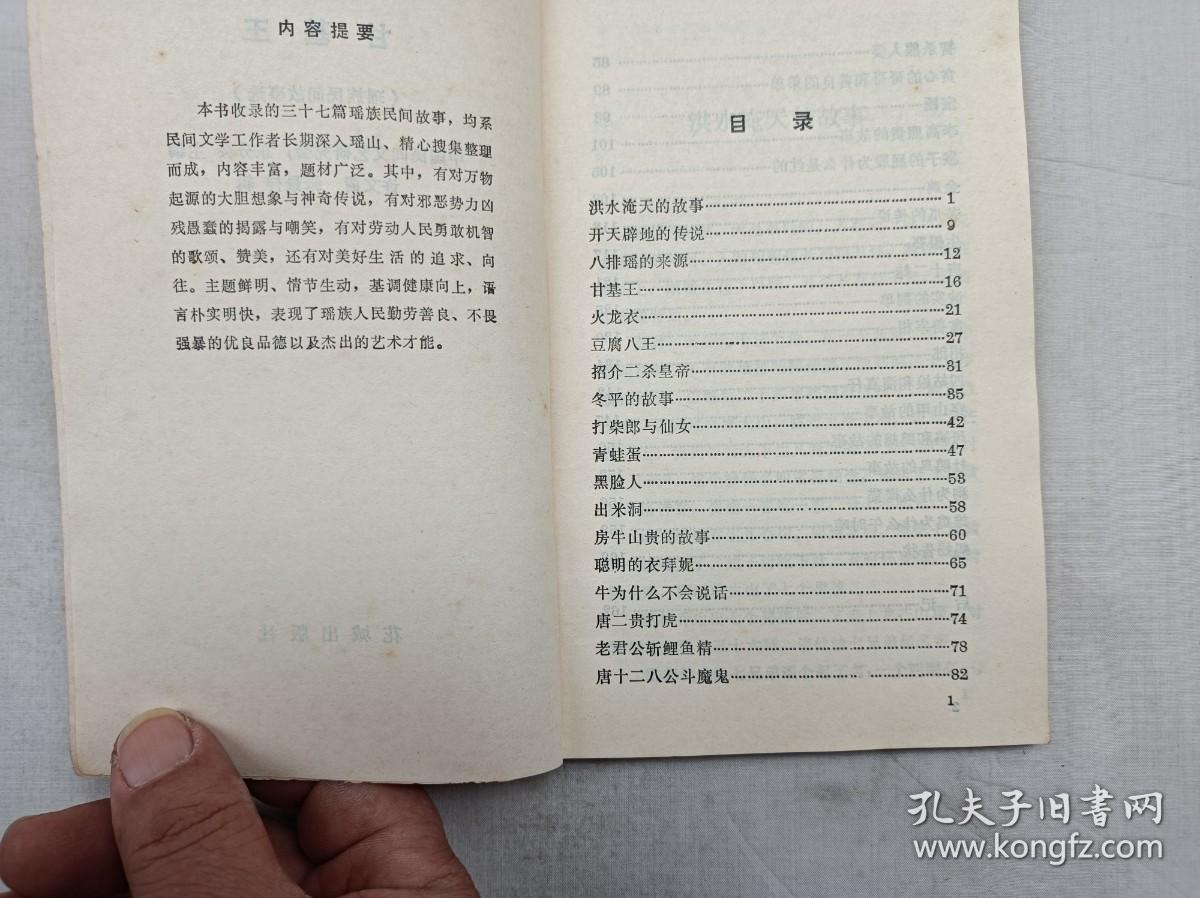 内容提要
本书收录的三十七篇瑶族民间故事，均系
民间文学工作者长期深入瑶山、精心搜集整理
而成，内容丰富，题材广泛。其中，有对万物
起源的大胆想象与神奇传说，有对邪恶势力凶
残愚蠢的揭露与嘲笑，有对劳动人民勇敢机智
的歌颂、赞美，还有对美好生活的追求、向
往。主题鲜明、情节生动，基调健康向上，语
言朴实明快，表现了瑶族人民勤劳善良、不畏
强暴的优良品德以及杰出的艺术才能。
目录
洪水淹天的故事……1
开天辟地的传说……9
八排瑶的来源……12
甘基王……16
火龙衣……21
豆腐八王……27
招介二杀皇帝……31
冬平的故事……35
打柴郎与仙女……42
青蛙蛋……47
黑脸人……53
出米洞……58
房牛山贵的故事……60
聪明的衣拜妮……65
牛为什么不会说话……71
唐二贵打虎……74
老君公斩鲤鱼精……78
唐十二八公斗魔鬼……82
1
孔夫子旧书网
www.kongfz.com